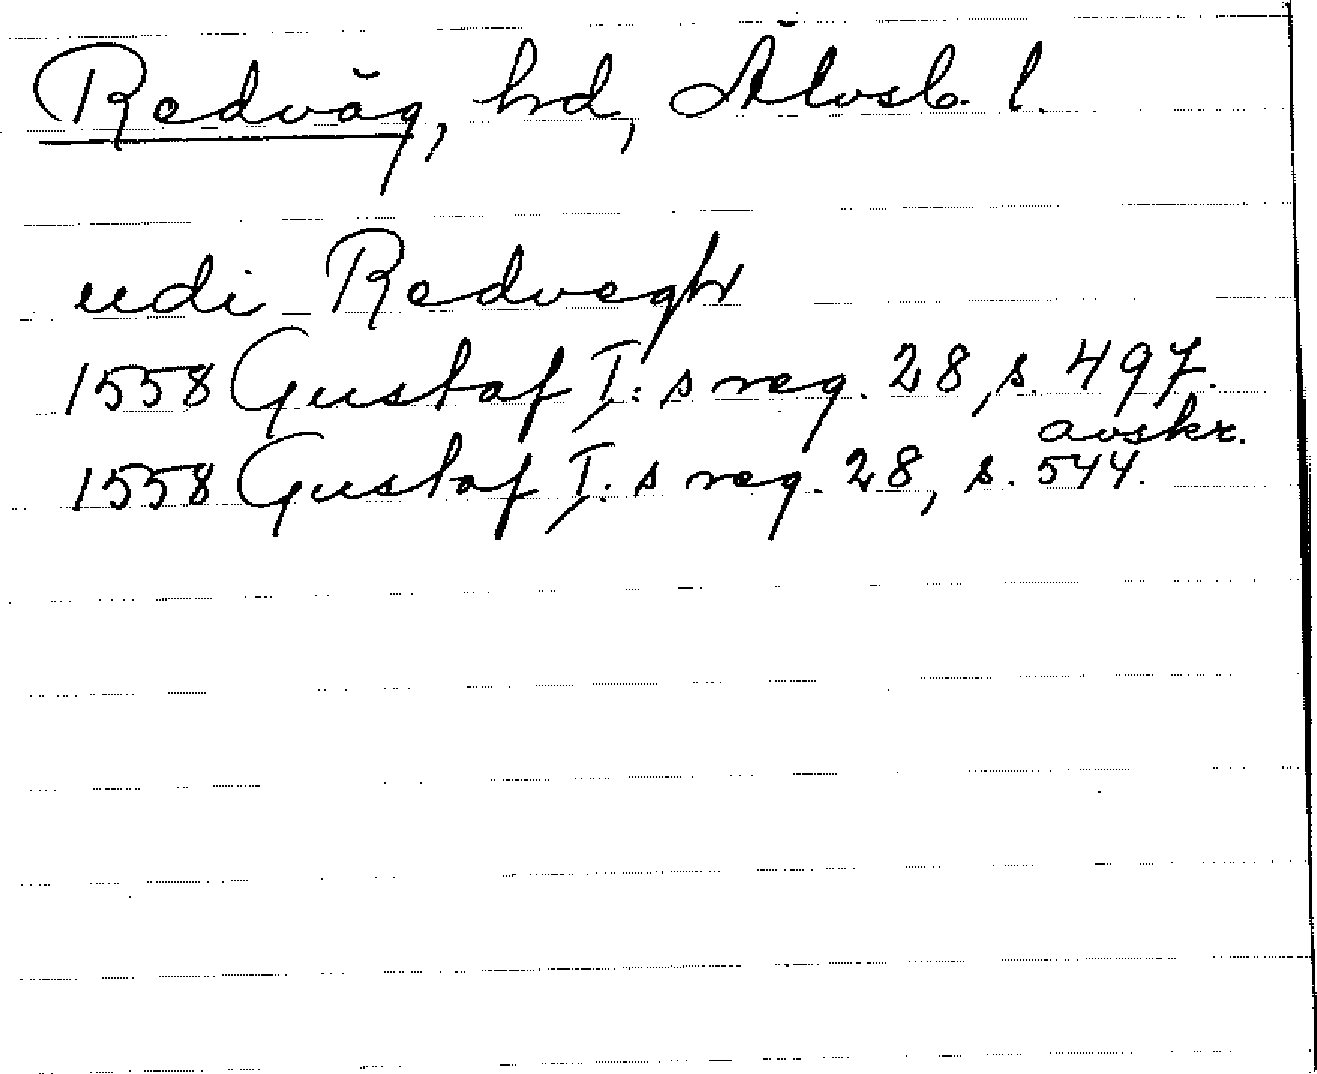 Redväg, hd, Älvsb. l.
udi Redvegh
1558 Gustaf I:s reg. 28, s. 497.
avskr.
1558 Gustaf I:s reg. 28, s. 544.